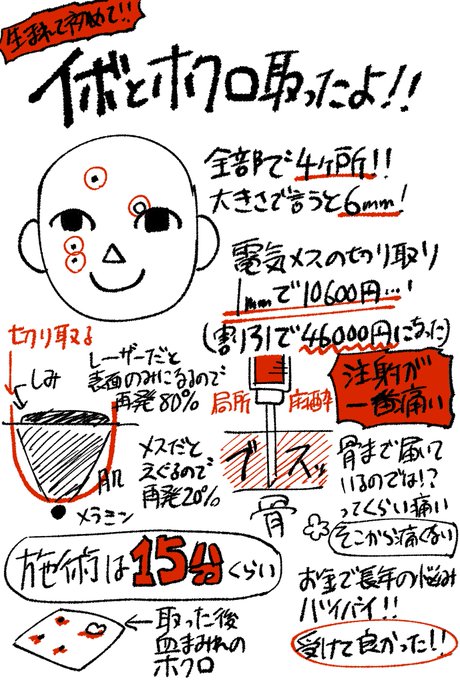 生まれて初めて!!
イボとホクロ取ったよ!!
全部で4ヶ所!!
大きさで言うと6mm!
電気メスの切り取り
1mmで10600円…!
(割引で46000円になった)
切り取る
しみ
レーザーだと
表面のみになるので
再発80%
メスだと
えぐるので
再発20%
肌
メラニン
局所 麻酔
ブスッ
骨
注射が
一番痛い
骨まで届いて
いるのでは!?
ってくらい痛い
そこから痛くない
施術は15分くらい
取った後
血まみれの
ホクロ
お金で長年の悩み
バイバイ!!
受けて良かった!!